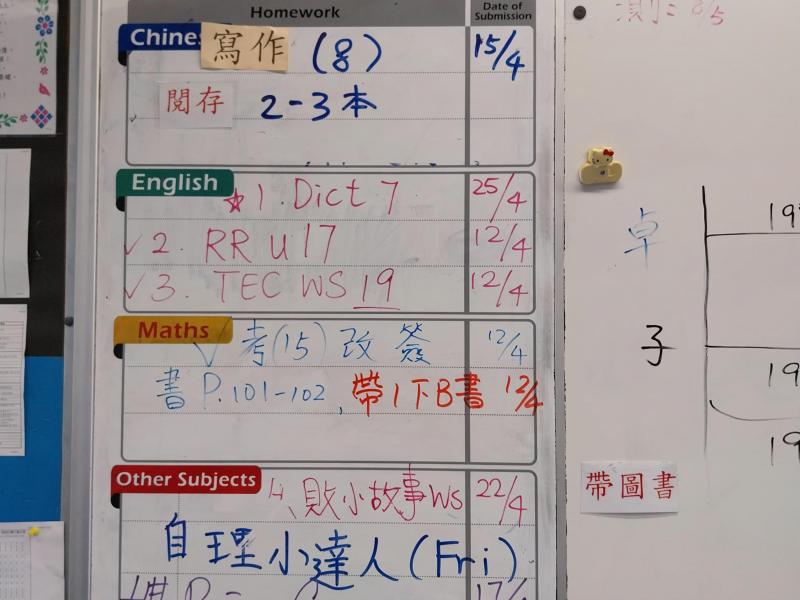 Homework Date of Submission
Chines 寫作 (8) 15/4
閱存 2-3本
English
★1. Dict 7 25/4
✓2. RR U17 12/4
✓3. TEC WS 19 12/4
Maths
✓考(15)改簽 12/4
書P.101-102, 帶1下B書 12/4
Other Subjects
敗小故事WS 22/4
自理小達人(Fri)
17/
8/5
卓
子
帶圖書